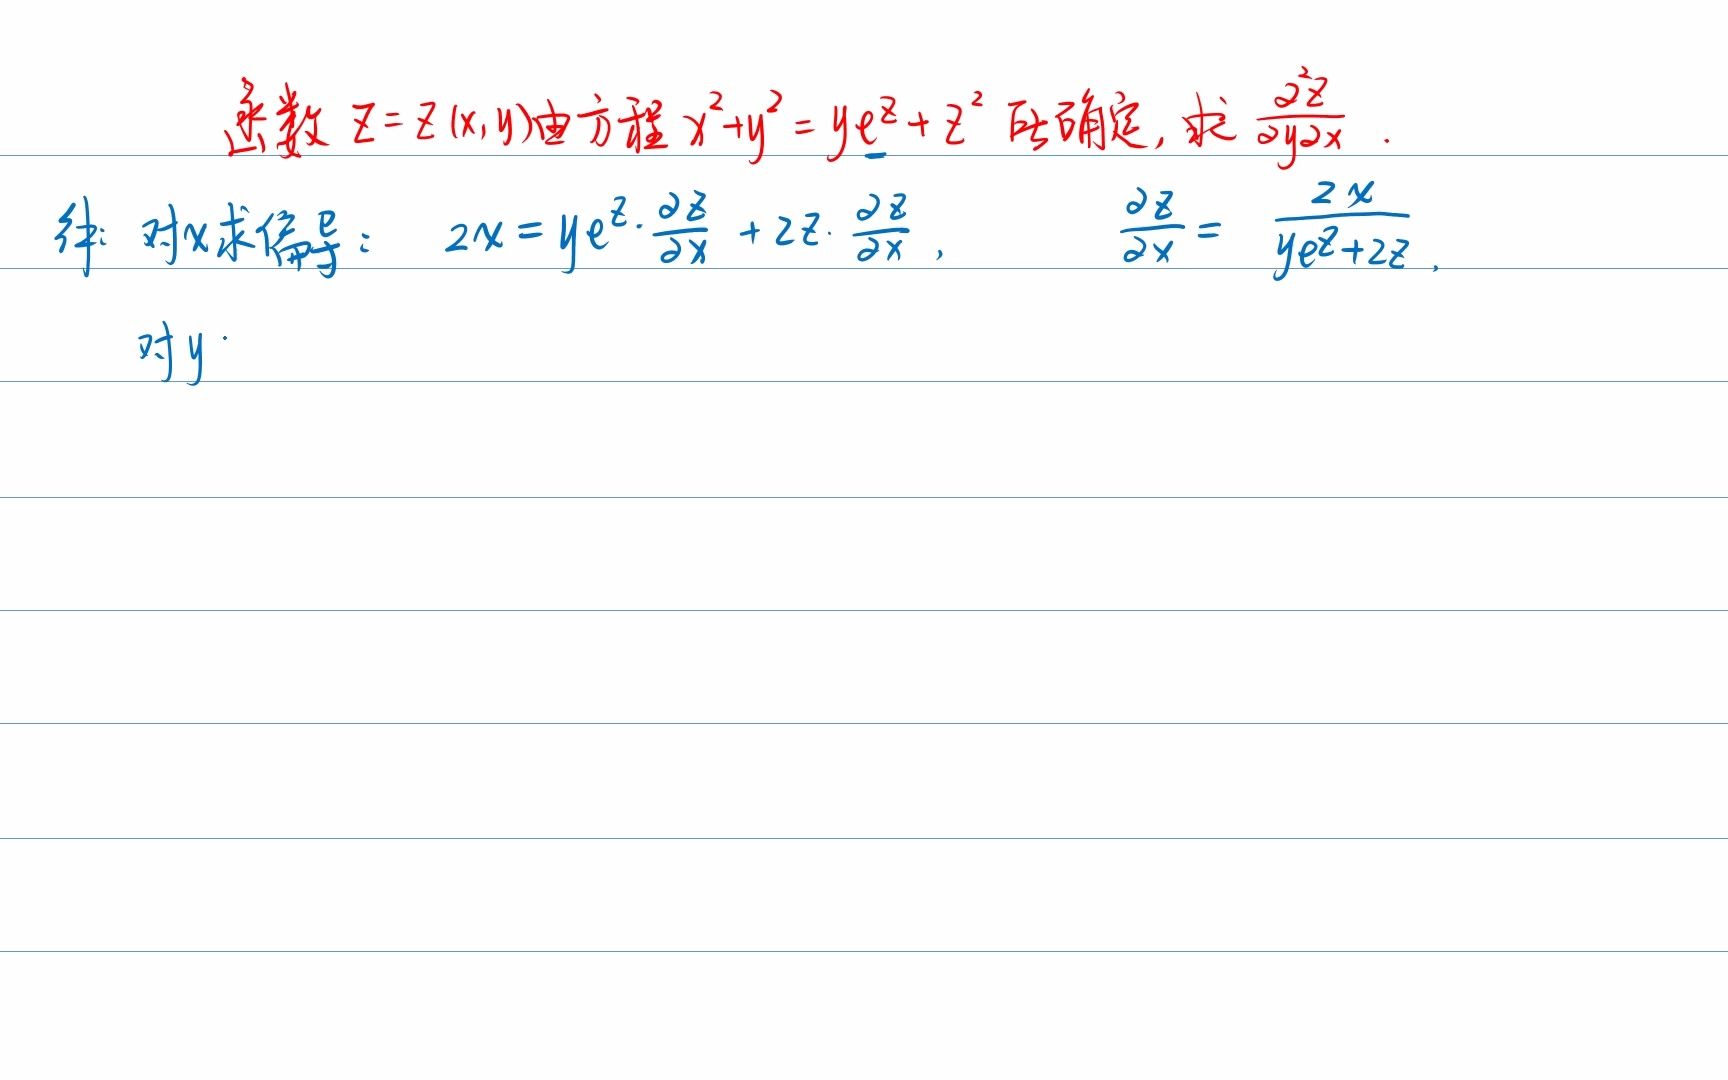 函数 z=z(x,y)由方程 x²+y²=ye^z+z² 所确定, 求 ∂²z/∂y∂x .
解: 对x求偏导: 2x=ye^z·∂z/∂x+2z·∂z/∂x, ∂z/∂x=2x/(ye^z+2z),
对y·